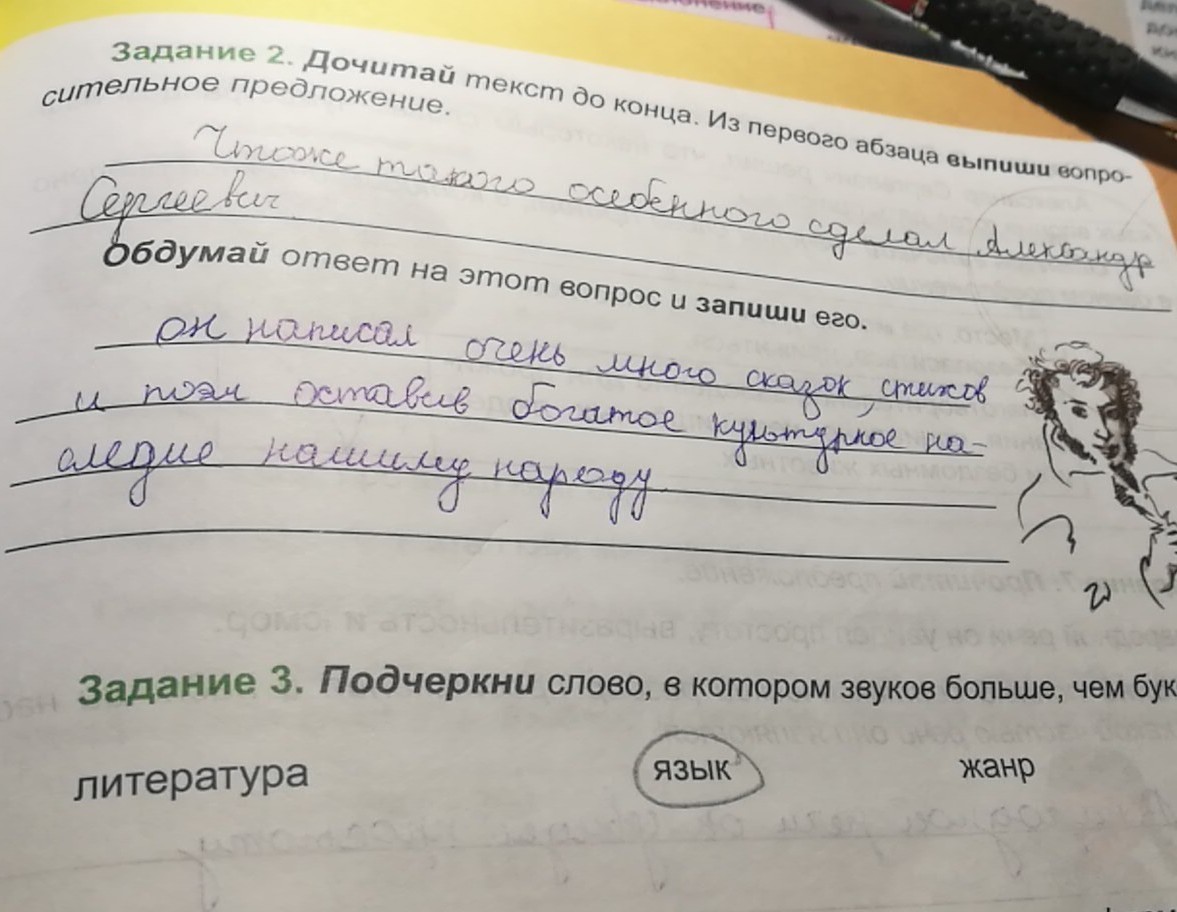 Задание 2. Дочитай текст до конца. Из первого абзаца выпиши вопро-
сительное предложение.
Чтоже такого особенного сделал Александр
Сергеевич
Обдумай ответ на этот вопрос и запиши его.
он написал очень много сказок стихов
и поэм оставив богатое культурное на-
следие нашиму народу
Задание 3. Подчеркни слово, в котором звуков больше, чем бук
литература язык жанр